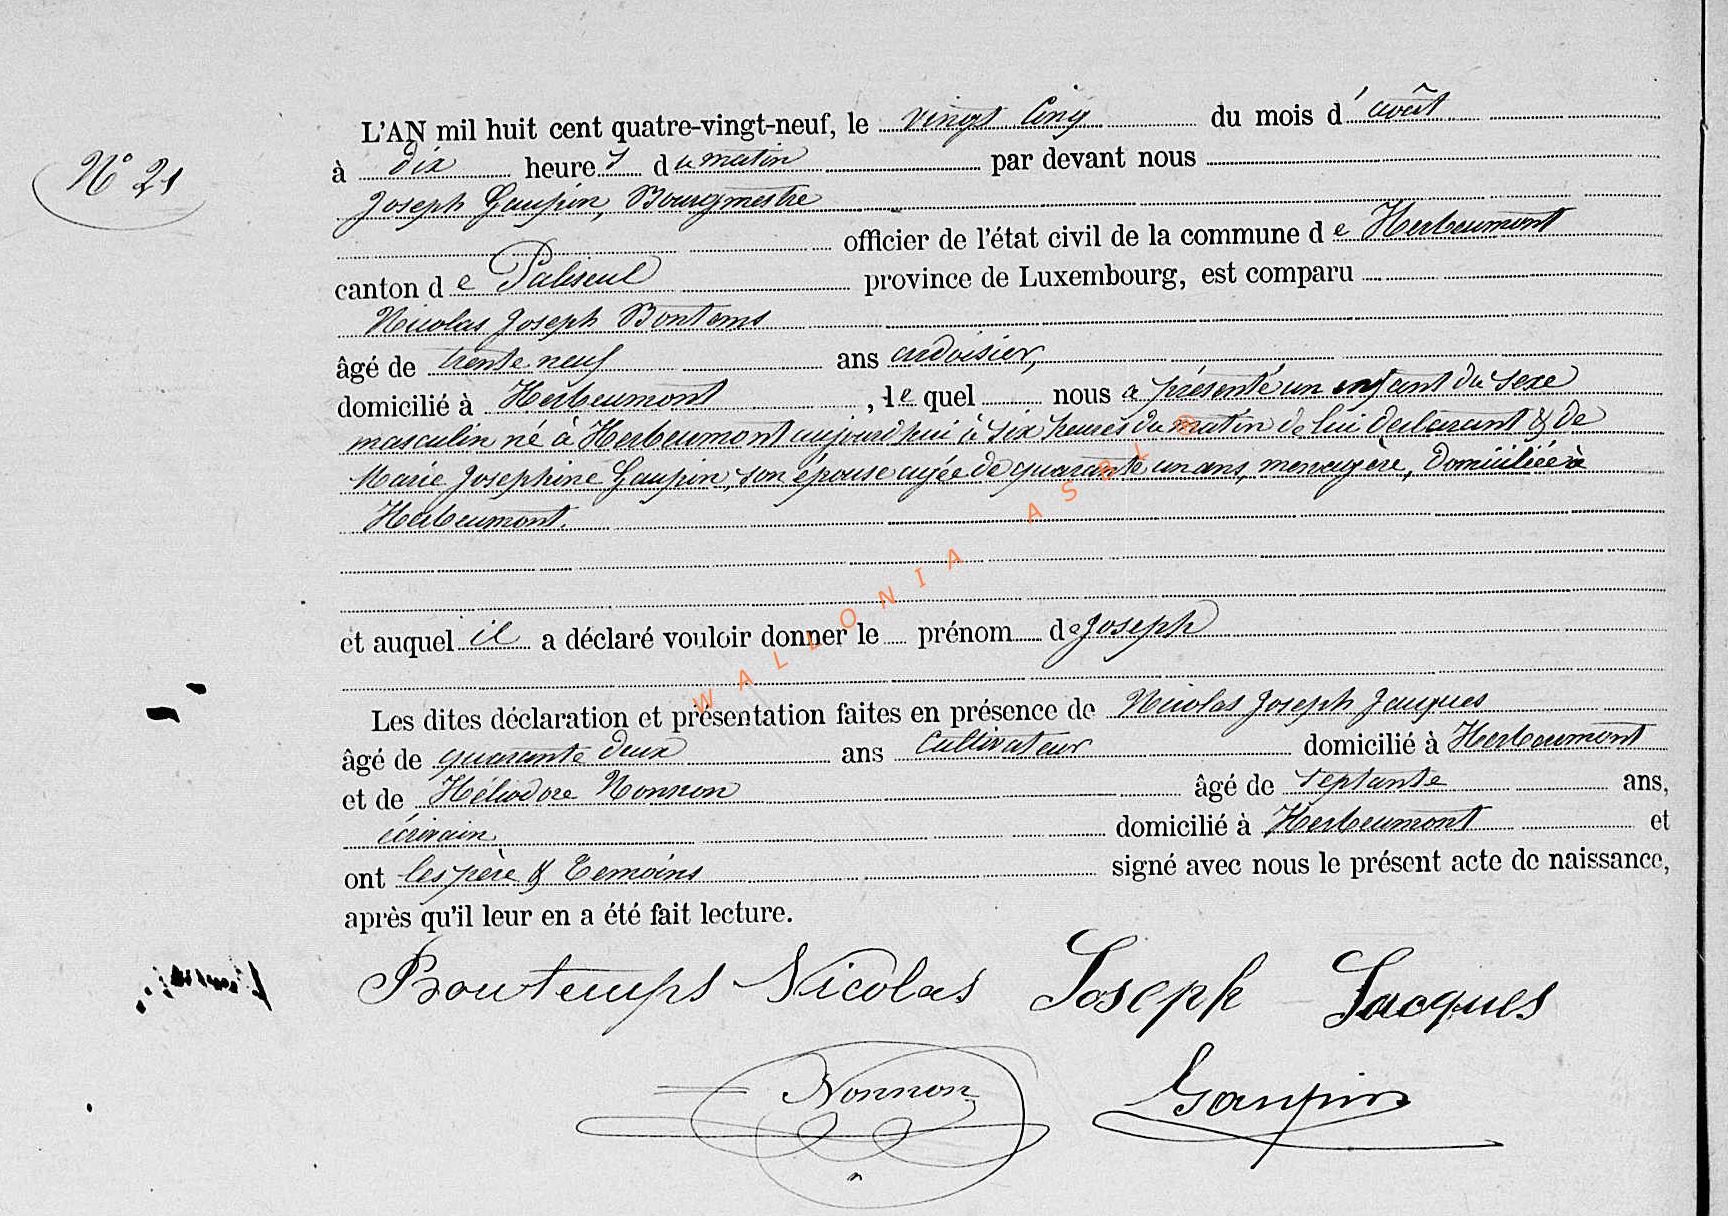 L'AN mil huit cent quatre-vingt-neuf, le vingt Cinq du mois d'août
N° 21
à dix heures du matin par devant nous
Joseph Gaupin, Bourgmestre
officier de l'état civil de la commune de Herbeumont
canton de Paliseul province de Luxembourg, est comparu
Nicolas Joseph Bontems
âgé de trente neuf ans ardoisier,
domicilié à Herbeumont, le quel nous a présenté un enfant du sexe
masculin né à Herbeumont aujourd'hui à six heures du matin de lui déclarant & de
Marie Josephine Gaupin, son épouse agée de quarante un ans, menagère, Domiciliée à
Herbeumont.
et auquel il a déclaré vouloir donner le prénom de Joseph
Les dites déclaration et présentation faites en présence de Nicolas Joseph Jacques
âgé de quarante deux ans Cultivateur domicilié à Herbeumont
et de Héliodore Nonnon âgé de septante ans,
écrivain, domicilié à Herbeumont et
ont les père & Temoins signé avec nous le présent acte de naissance,
après qu'il leur en a été fait lecture.
Bontemps Nicolas Joseph Jacques
Nonnon Gaupin
WALLONIA ASBL ©